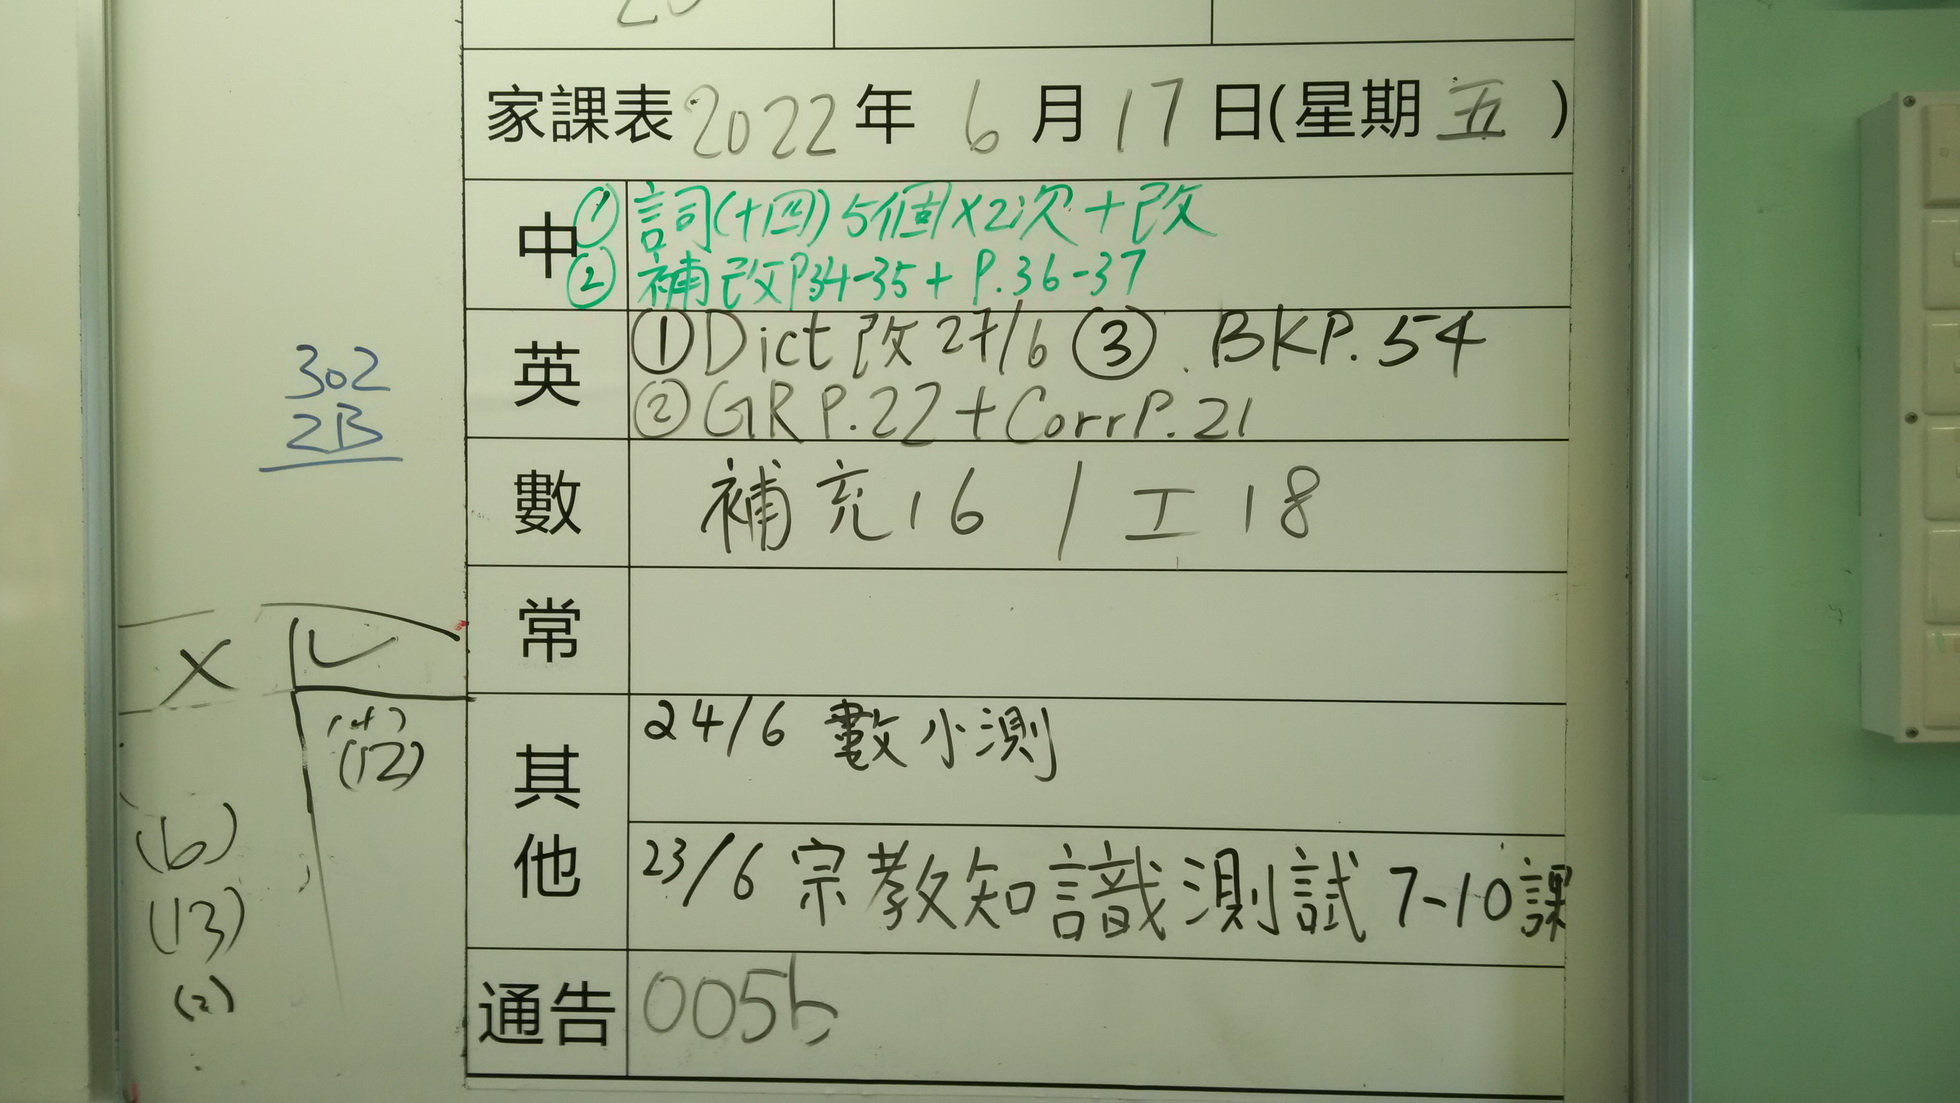 家課表 2022年 6月 17日(星期五)
中 ① 詞(十四) 5個x2次+改
② 補改P34-35 + P.36-37
英 ① Dict 改 27/6 ③ BKP.54
② GR P.22 + Corr P.21
數 補充16 / 工18
常
其他
24/6 數小測
23/6 宗教知識測試 7-10課
通告 005b
302
2B
X
(12)
(6)
(13)
(2)